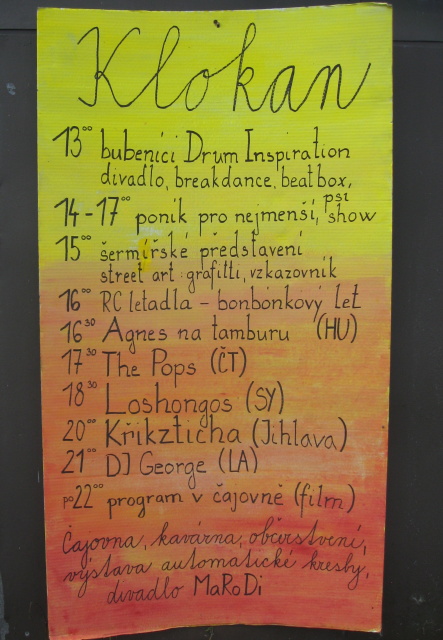 Klokan
13⁰⁰ bubeníci Drum Inspiration
divadlo, breakdance, beatbox,
14-17⁰⁰ poník pro nejmenší, psí show
15⁰⁰ šermířské představení
street art : grafitti, vzkazovník
16⁰⁰ RC letadla - bonbónkový let
16³⁰ Agnes na tamburu (HU)
17³⁰ The Pops (ČT)
18³⁰ Loshongos (SY)
20⁰⁰ Křikzticha (Jihlava)
21⁰⁰ DJ George (LA)
po 22⁰⁰ program v čajovně (film)
Čajovna, kavárna, občerstvení,
výstava automatické kresby,
divadlo MaRoDi